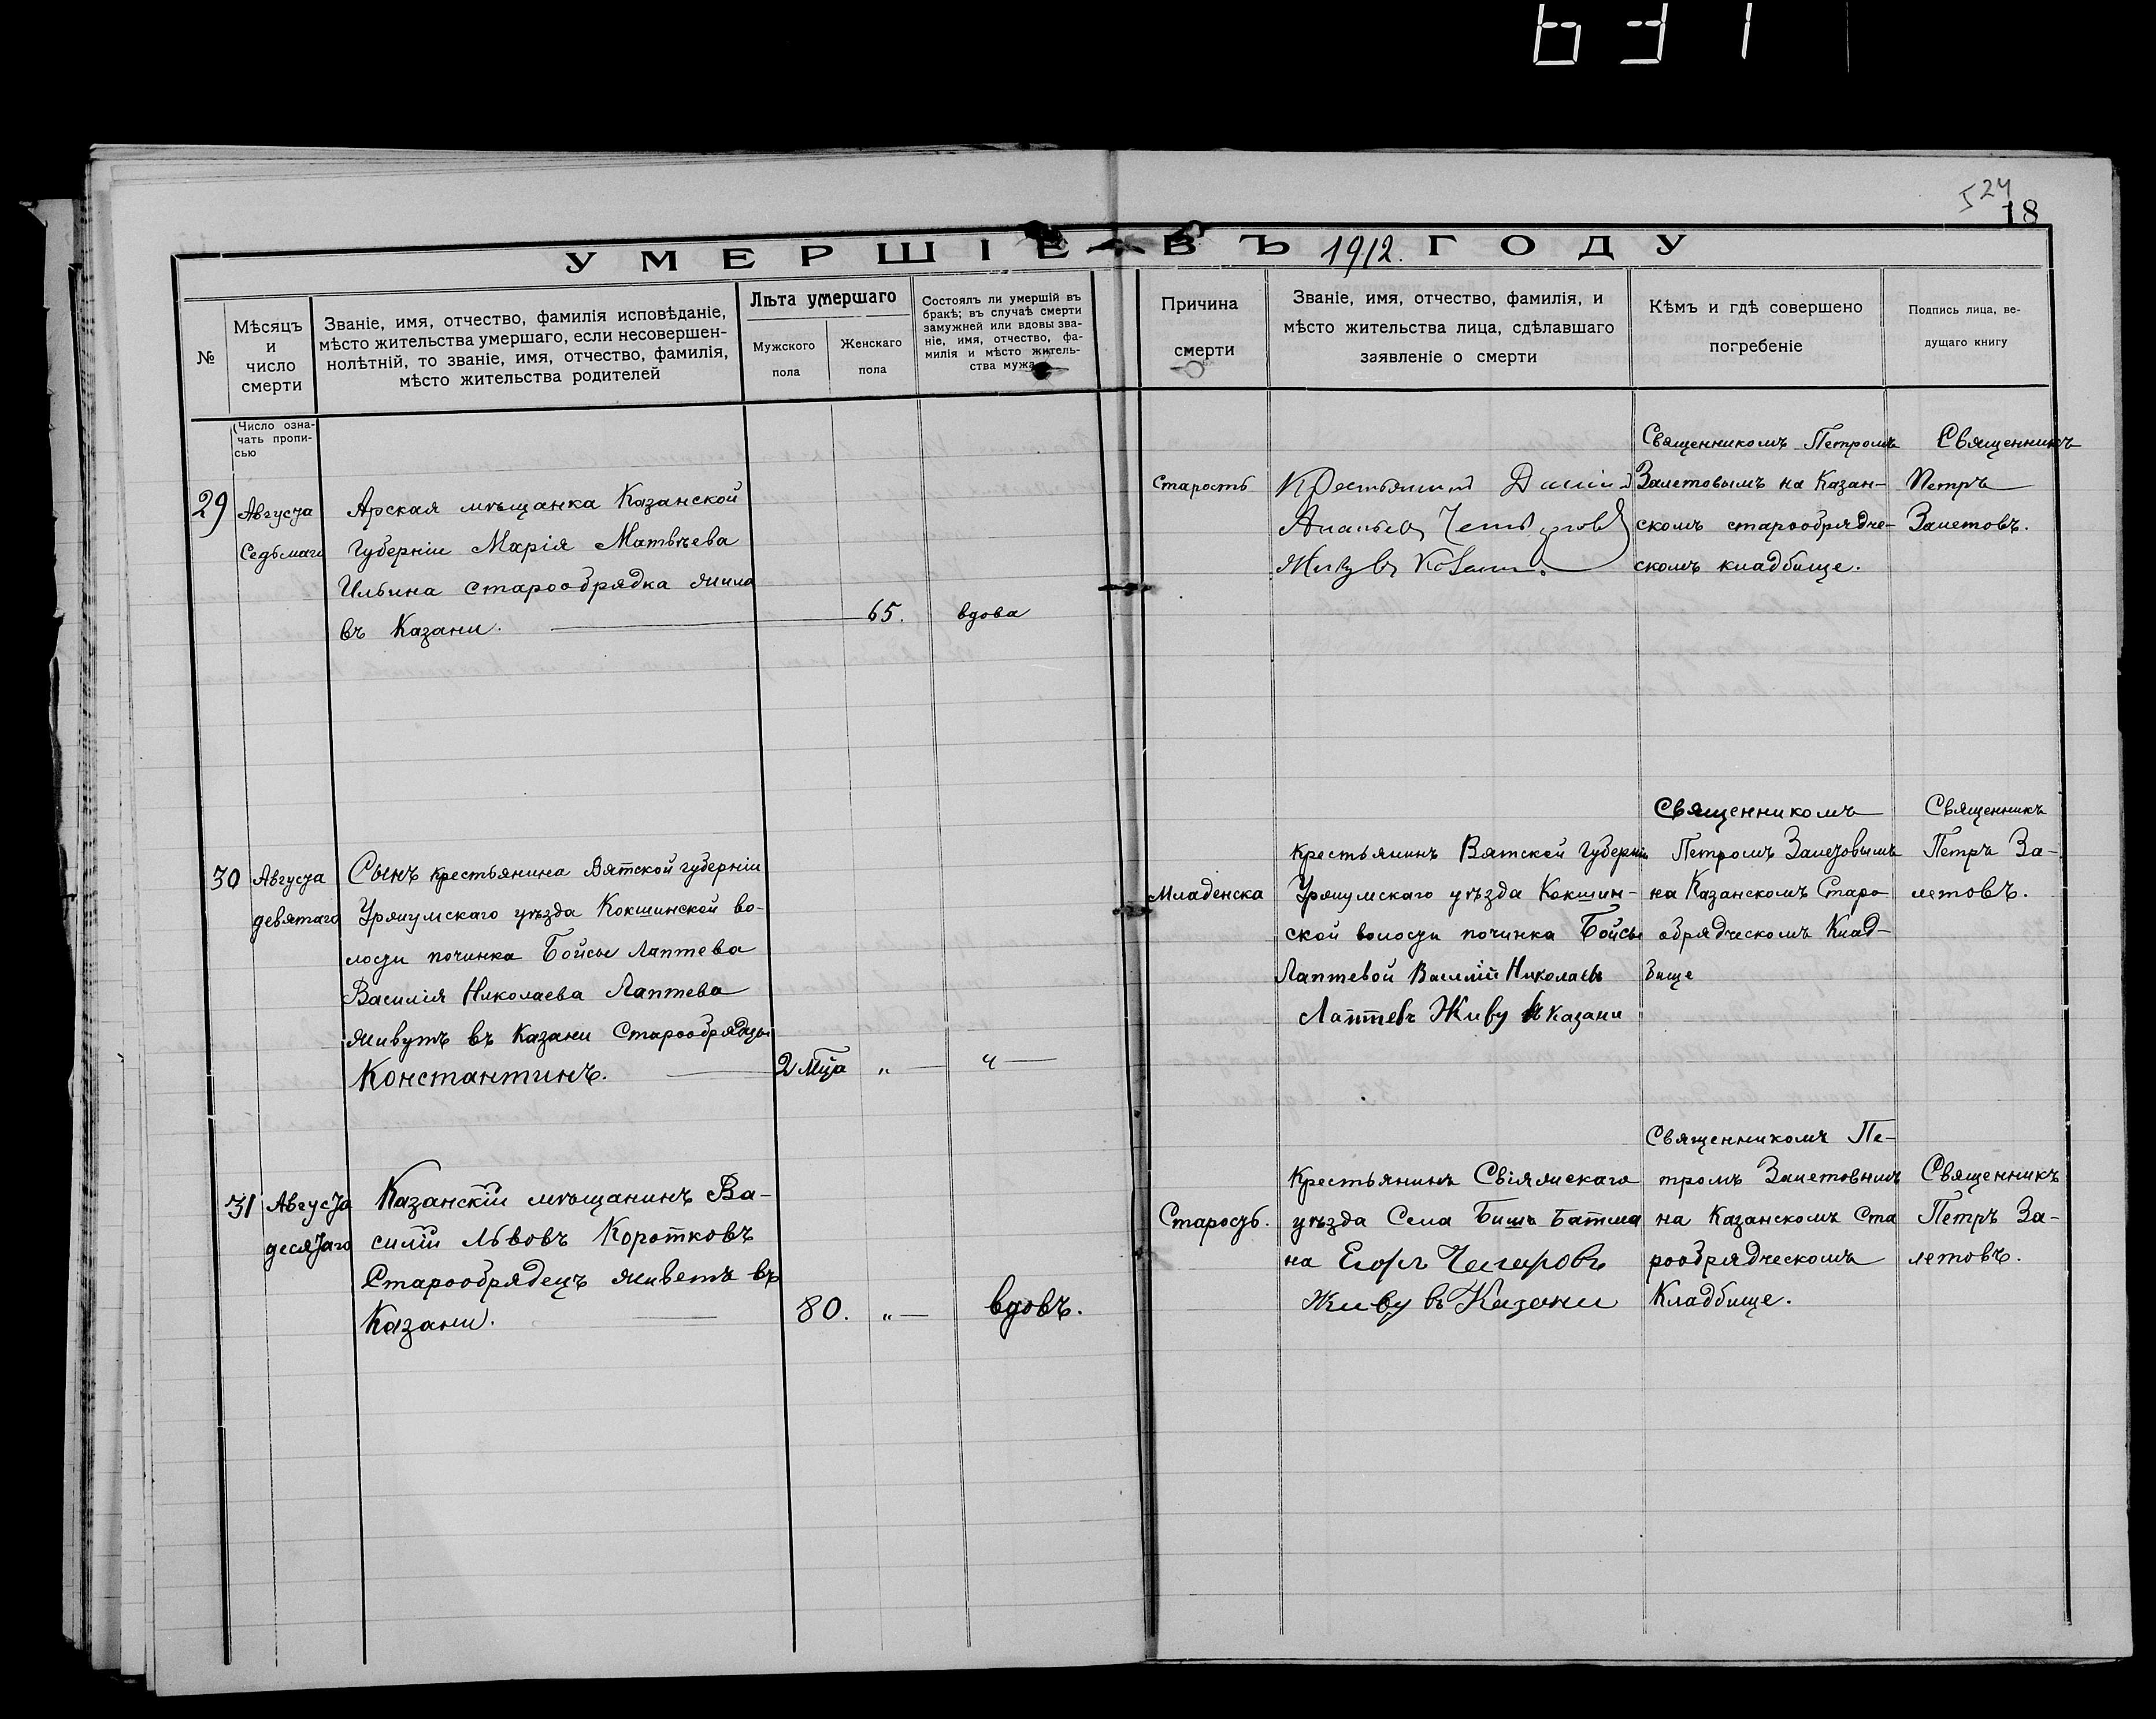 631
524
18
УМЕРШІЕ ВЪ 1912. ГОДУ
№
Мѣсяцъ
и
число
смерти
Званіе, имя, отчество, фамилія исповѣданіе,
мѣсто жительства умершаго, если несовершен-
нолѣтній, то званіе, имя, отчество, фамилія,
мѣсто жительства родителей
Лѣта умершаго
Мужского
пола
Женскаго
пола
Состоялъ ли умершій въ
бракѣ; въ случаѣ смерти
замужней или вдовы зва-
ніе, имя, отчество, фа-
милія и мѣсто житель-
ства мужа
Причина
смерти
Званіе, имя, отчество, фамилія, и
мѣсто жительства лица, сдѣлавшаго
заявленіе о смерти
Кѣмъ и гдѣ совершено
погребеніе
Подпись лица, ве-
дущаго книгу
(Число озна-
чать пропи-
сью
29
Августа
Седьмаго
Арская мѣщанка Казанской
Губерніи Марія Матвѣева
Ильина старообрядка жила
въ Казани.
65.
вдова
Старость
Крестьянинъ
Живу въ Казани.
Священникомъ Петромъ
Залетовымъ на Казан-
скомъ старообрядче-
скомъ кладбище.
Священникъ
Петръ
Залетовъ.
30
Августа
девятаго
Сынъ крестьянина Вятской губерніи
Уржумскаго уѣзда Кокшинской во-
лости починка Бойсы Лаптева
Василія Николаева Лаптева
живутъ въ Казани Старообрядцы
Константинъ.
2 Мца
„
„
Младенска
Крестьянинъ Вятской Губерніи
Уржумскаго уѣзда Кокшин-
ской волости починка Бойсы
Лаптевой Василій Николаевъ
Лаптевъ Живу в Казани
Священникомъ
Петромъ Залетовымъ
на Казанскомъ Старо
обрядческомъ Клад-
бище
Священникъ
Петръ За-
летовъ.
31
Августа
десятаго
Казанскій мѣщанинъ Ва-
силій Львовъ Коротковъ
Старообрядецъ живетъ въ
Казани.
80.
„
вдовъ.
Старость.
Крестьянинъ Свіяжскаго
уѣзда Села Бишъ Батма
на Егоръ
Живу въ Казани
Священникомъ Пе-
тромъ Залетовымъ
на Казанскомъ Ста
рообрядческомъ
Кладбище.
Священникъ
Петръ За-
летовъ.